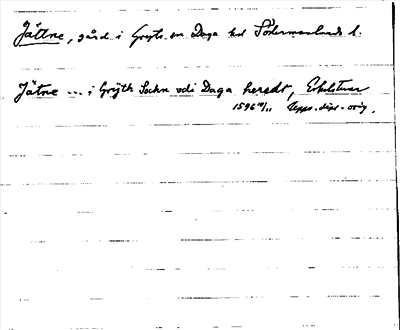 Jättne, gård i Gryts sn Daga hd Södermanlands l.
Jätne ... i Grÿth Sockn vdi Daga heredt, Eskelstuna
1596 10/11 Upps. dipl. orig.